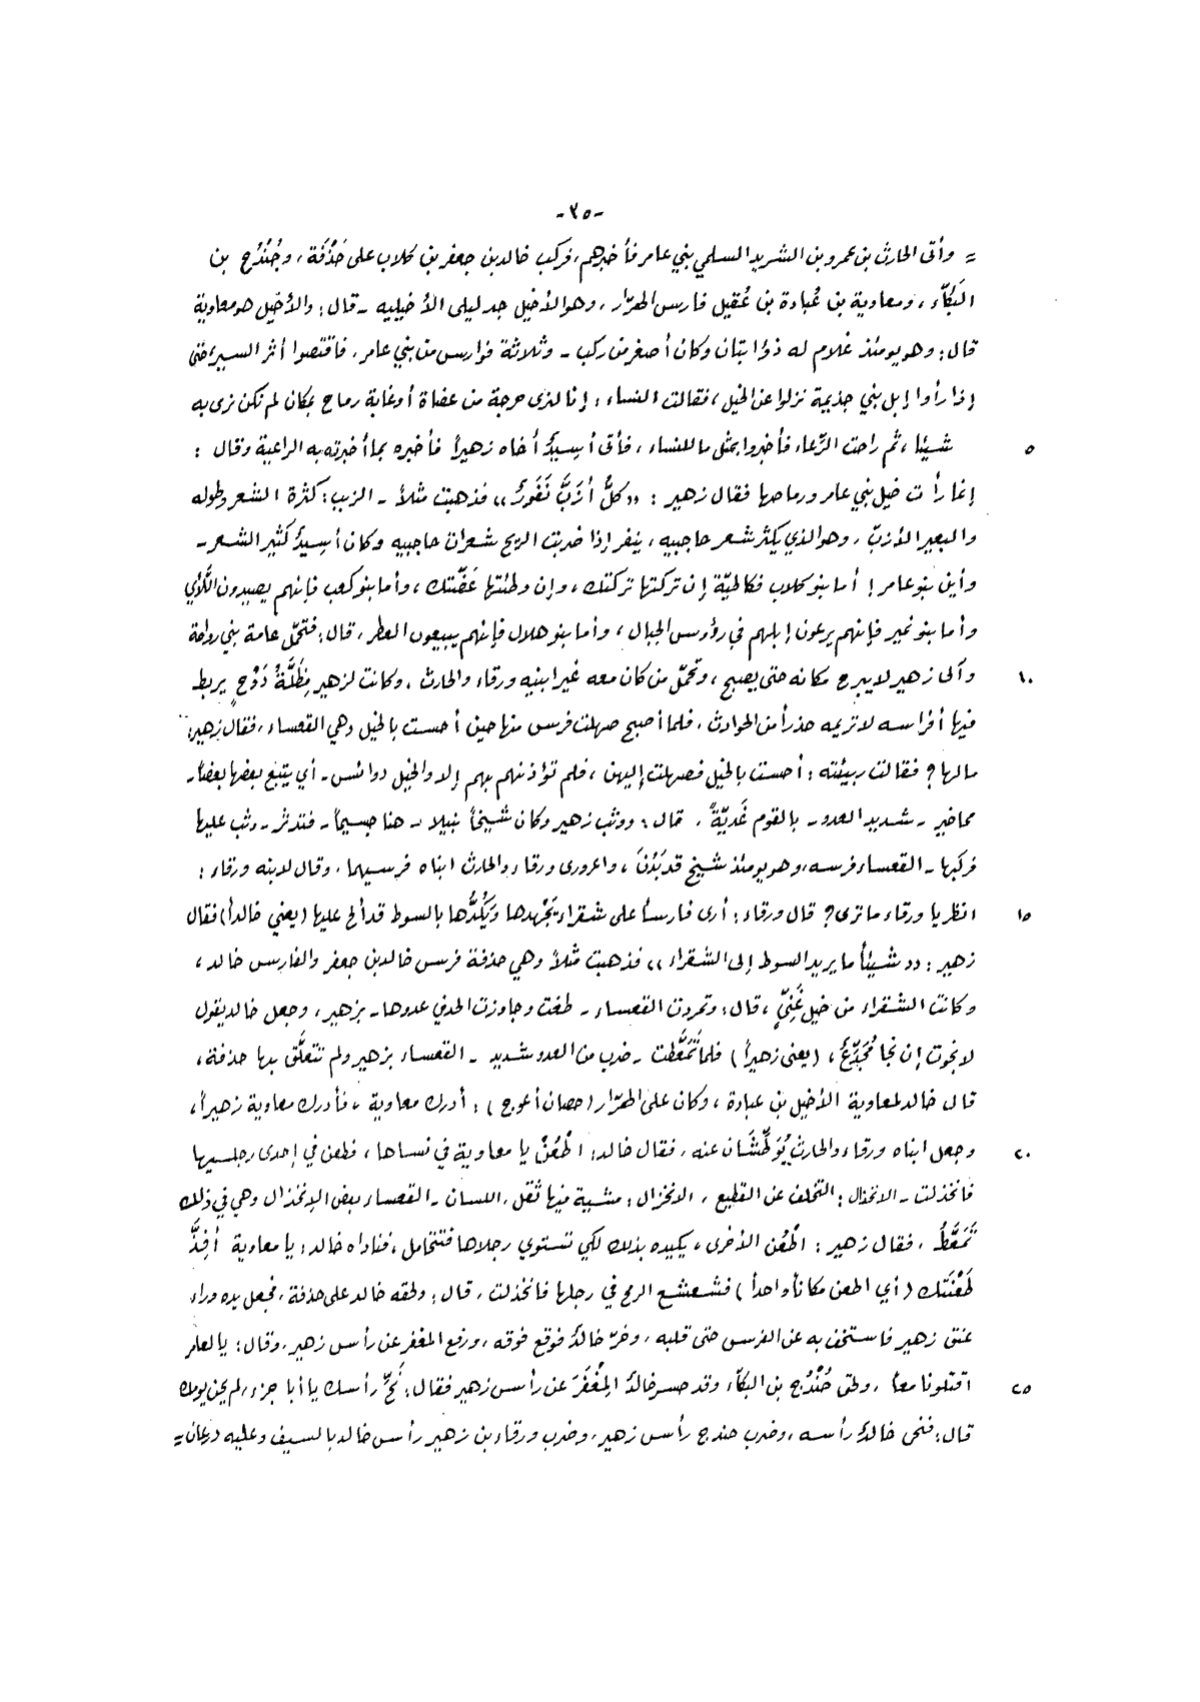 -٣٥-
= وأتى الحارث بن عمرو بن الشريد السلمي بني عامر فأخبرهم، فركب خالد بن جعفر بن كلاب على حَذْفَة، وجُنْدُح بن
البَكَّاء، ومعاوية بن عُبادة بن عُقيل فارس الهرّار، وهو الأخيل جد ليلى الأخيلية - قال: والأخيل هو معاوية
قال: وهو يومئذ غلام له ذؤابتان وكان أصغر من ركب - وثلاثة فوارس من بني عامر، فاقتصوا أثر السير، حتى
إذا رأوا إبل بني جذيمة نزلوا عن الخيل، فقالت النساء: إنا لنرى حرجة من عضاة أو غابة رماح بمكان لم نكن نرى به
٥ شيئًا، ثم راحت الرِّعاء فأخبروا بمثل ما للنساء، فأتى أسِيدٌ أخاه زهيراً فأخبره بما أخبرته به الراعية وقال:
إنما رأت خيل بني عامر ورماحها فقال زهير: «كلُّ أزَبَّ نَفَورٌ» فذهبت مثلاً - الزبب: كثرة الشعر وطوله
والبعير الأزبّ، وهو الذي يكثر شعر حاجبيه، ينفر إذا ضربت الريح شعرات حاجبيه وكان أسِيدٌ كثير الشعر -
وأين بنو عامر! أما بنو كلاب فكالحيّة إن تركتها تركتك، وإن وطئتها عَضَّتك، وأما بنو كعب فإنهم يصيدون اللَّأي
وأما بنو نمير فإنهم يرعون إبلهم في رؤوس الجبال، وأما بنو هلال فإنهم يبيعون العطر، قال: فتحمّل عامة بني رواحة
١٠ وآلى زهير لا يبرح مكانه حتى يصبح، وتحمّل من كان معه غير ابنيه ورقاء والحارث، وكانت لزهير مِظَلَّةُ دَوْحٍ يربط
فيها أفراسه لا تريمه حذراً من الحوادث، فلما أصبح صهلت فرس منها حين أحست بالخيل وهي القعساء، فقال زهير:
مالها؟ فقالت ربيئته: أحست بالخيل فصهلت إليهن، فلم تؤذنهم بهم إلا والخيل دوائس - أي يتبع بعضها بعضاً -
محاضير - شديد العدو - بالقوم غَديّةً، قال: ووثب زهير وكان شيخاً نبيلا - هنا جسيماً - فتدثر - وثب عليها
فركبها - القعساء فرسه، وهو يومئذ شيخ قد بَدُنَ، واعرورى ورقاء والحارث ابناه فرسيهما، وقال لابنه ورقاء:
١٥ انظر يا ورقاء ما ترى؟ قال ورقاء: أرى فارساً على شقراء يَجْهدها ويَكُدُّها بالسوط قد ألح عليها (يعني خالداً) فقال
زهير: «شيئاً ما يريد السوط إلى الشقراء» فذهبت مثلاً وهي حذفة فرس خالد بن جعفر والفارس خالد،
وكانت الشقراء من خيل غَنِيّ، قال: وتمردت القعساء - طغت وجاوزت الحد في عدوها - بزهير، وجعل خالد يقول
لا نجوت إن نجا مُجَدَّعٌ، (يعني زهيراً) فلما تَمَعَّطت - ضرب من العدو شديد - القعساء بزهير ولم تتعلَّق بها حذفة،
قال خالد لمعاوية الأخيل بن عبادة، وكان على الهرّار (حصان أعوج): أدرك معاوية، فأدرك معاوية زهيراً،
٢٠ وجعل ابناه ورقاء والحارث يُوَطِّشَان عنه، فقال خالد: اطْعُنْ يا معاوية في نساها، فطعن في إحدى رجليها
فانخذلت - الانخذال: التخلف عن القطيع، الانخزال: مشية فيها ثقل، اللسان - القعساء بعض الإنخذال وهي في ذلك
تَمَعَّطُ، فقال زهير: اطْعُن الأخرى، يكيده بذلك لكي تستوي رجلاها فتتحامل، فناداه خالد: يا معاوية أفِذَّ
طَعْنَتك (أي اطعن مكاناً واحداً) فشعشع الرمح في رجلها فانخذلت، قال: ولحقه خالد على حذفة، فجعل يده وراء
عنق زهير فاستخف به عن الفرس حتى قلبه، وخرّ خالدٌ فوقع فوقه، ورفع المغفر عن رأس زهير، وقال: يا لعامر
٢٥ اقتلونا معاً، ولحق حُنْدُج بن البكّاء وقد حسر خالدٌ المِغْفَرَ عن رأس زهير فقال: نَحِّ رأسك يا أبا جزء، لم يحن يومك
قال: فنحى خالدٌ رأسه، وضرب حندج رأس زهير، وضرب ورقاء بن زهير رأس خالد بالسيف وعليه درعان =